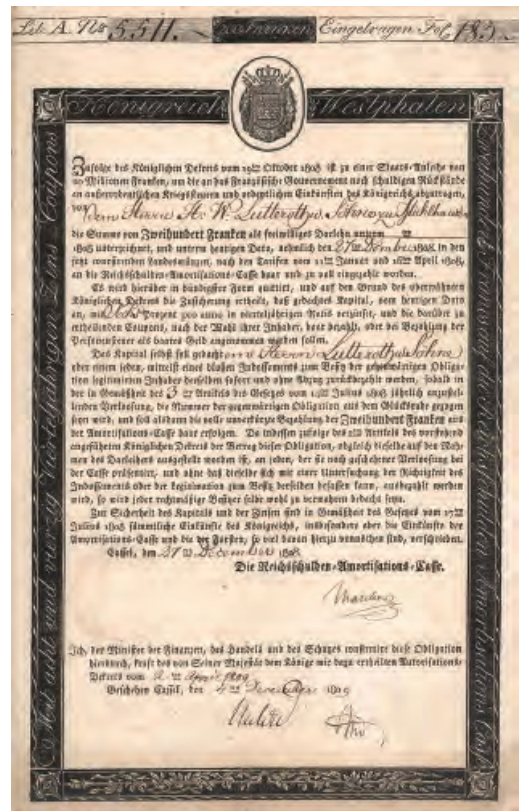 Lit. A. No 5511. Eingetragen Fol. 185
Königreich Westphalen
Zufolge des Königlichen Dekrets vom 19ten Oktober 1808 ist zu einer Staats-Anleihe von
20 Millionen Franken, um die an das Französische Gouvernement noch schuldigen Rückstände
an außerordentlichen Kriegssteuern und ordentlichen Einkünften des Königreichs abzutragen,
von dem Herrn W. Lutteroth Söhne zu Mühlhausen
die Summe von Zweihundert Franken als freiwilliges Darlehn unterm
1808 unterzeichnet, und unterm heutigen Dato, nehmlich den 27ten Dezember 1808 in den
jetz coursirenden Landesmünzen, nach den Tarifen vom 11ten Januar und 18ten April 1808,
an die Reichsschulden-Amortisations-Casse baar und zu voll eingezahlt worden.
Es wird hierüber in bündigster Form quittirt, und auf den Grund des oberwähnten
Königlichen Dekrets die Zusicherung ertheilt, daß gedachtes Kapital, vom heutigen Dato
an, mit Sechs Prozent pro anno in vierteljährigen Ratis verzinset, und die darüber zu
ertheilenden Coupons, nach der Wahl ihrer Inhaber, baar bezahlt, oder bei Bezahlung der
Personensteuer als baares Geld angenommen werden sollen.
Das Kapital selbst soll gedachten Herrn Lutteroth Söhne
oder einem jeden, mittelst eines bloßen Indossements zum Besitz der gegenwärtigen Obliga-
tion legitimirten Inhaber derselben sofort und ohne Abzug zurückbezahlt werden, sobald in
der in Gemäßheit des 3ten Artikels des Gesetzes vom 14ten Julius 1808 jährlich anzustel-
lenden Verloosung, die Nummer der gegenwärtigen Obligation aus dem Glücksrade gezogen
seyn wird, und soll alsdann die volle unverkürzte Bezahlung der Zweihundert Franken aus
der Amortisations-Casse baar erfolgen. Da indessen zufolge des Artikels des vorstehend
angeführten Königlichen Dekrets der Betrag dieser Obligation, obgleich dieselbe auf den Nah-
men des Darleihers ausgestellt worden ist, an jeden, der sie nach geschehener Verloosung bei
der Casse präsentirt, und ohne daß dieselbe sich mit einer Untersuchung der Richtigkeit des
Indossements oder der Legitimation zum Besitz derselben befassen kann, ausgezahlt werden
wird, so wird jeder rechtmäßige Besitzer selbe wohl zu verwahren bedacht seyn.
Zur Sicherheit des Kapitals und der Zinsen sind in Gemäßheit des Gesetzes vom 17ten
Julius 1808 sämmtliche Einkünfte des Königreichs, insbesondere aber die Einkünfte der
Amortisations-Casse und die der Forsten, so viel davon hierzu vonnöthen sind, verschrieben.
Cassel, den 27ten December 1808.
Die Reichsschulden-Amortisations-Casse.
Ich, der Minister der Finanzen, des Handels und des Schatzes constatire diese Obligation
hierdurch, kraft des von Seiner Majestät dem Könige mir dazu ertheilten Autorisations-
Dekrets vom April 1809
Geschehen Cassel, den 4ten December 1809
Mit acht und vierzig Vierteljährigen Zins Coupons